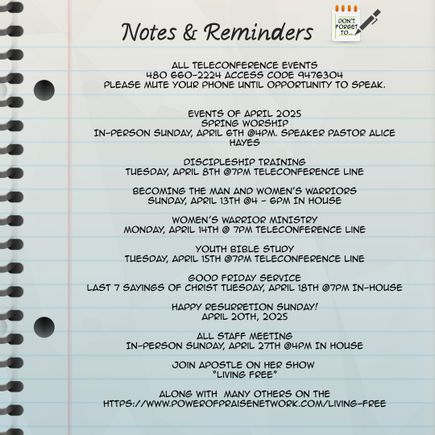 Notes & Reminders
DON'T
FORGET
TO...
ALL TELECONFERENCE EVENTS
480 660-2224 ACCESS CODE 9476304
PLEASE MUTE YOUR PHONE UNTIL OPPORTUNITY TO SPEAK.
EVENTS OF APRIL 2025
SPRING WORSHIP
IN-PERSON SUNDAY, APRIL 6TH @4PM. SPEAKER PASTOR ALICE
HAYES
DISCIPLESHIP TRAINING
TUESDAY, APRIL 8TH @7PM TELECONFERENCE LINE
BECOMING THE MAN AND WOMEN'S WARRIORS
SUNDAY, APRIL 13TH @4 - 6PM IN HOUSE
WOMEN'S WARRIOR MINISTRY
MONDAY, APRIL 14TH @ 7PM TELECONFERENCE LINE
YOUTH BIBLE STUDY
TUESDAY, APRIL 15TH @7PM TELECONFERENCE LINE
GOOD FRIDAY SERVICE
LAST 7 SAYINGS OF CHRIST TUESDAY, APRIL 18TH @7PM IN-HOUSE
HAPPY RESURRETION SUNDAY!
APRIL 20TH, 2025
ALL STAFF MEETING
IN-PERSON SUNDAY, APRIL 27TH @4PM IN HOUSE
JOIN APOSTLE ON HER SHOW
"LIVING FREE"
ALONG WITH MANY OTHERS ON THE
HTTPS://WWW.POWEROFPRAISENETWORK.COM/LIVING-FREE